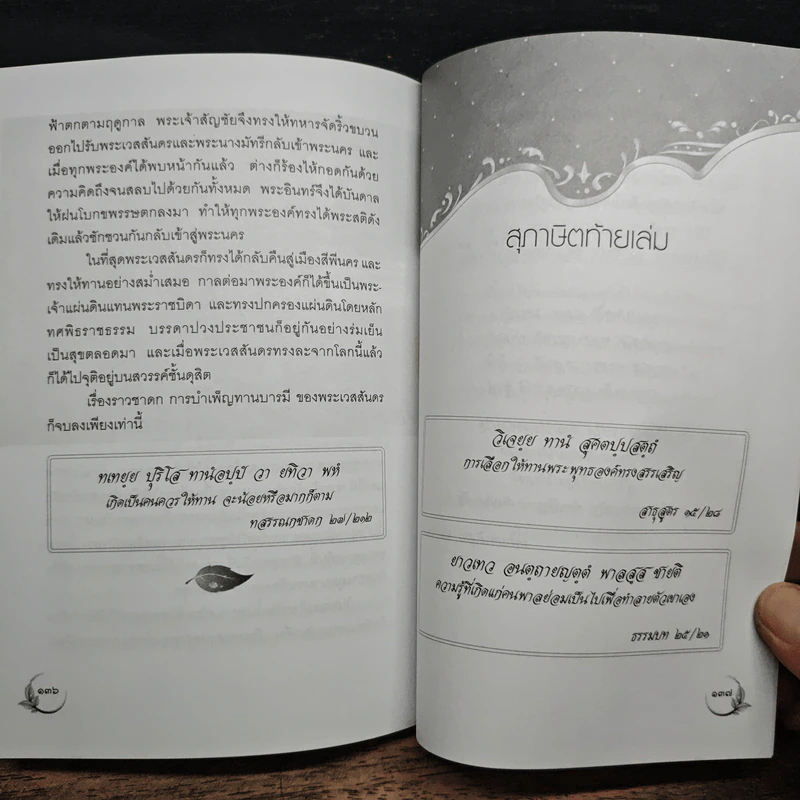 ฟ้าตกตามฤดูกาล พระเจ้าสัญชัยจึงทรงให้ทหารจัดริ้วขบวน
ออกไปรับพระเวสสันดรและพระนางมัทรีกลับเข้าพระนคร และ
เมื่อทุกพระองค์ได้พบหน้ากันแล้ว ต่างก็ร้องไห้กอดกันด้วย
ความคิดถึงจนสลบไปด้วยกันทั้งหมด พระอินทร์จึงได้บันดาล
ให้ฝนโบกขพรรษตกลงมา ทำให้ทุกพระองค์ทรงได้พระสติดัง
เดิมแล้วชักชวนกันกลับเข้าสู่พระนคร
ในที่สุดพระเวสสันดรก็ทรงได้กลับคืนสู่เมืองสีพีนคร และ
ทรงให้ทานอย่างสม่ำเสมอ กาลต่อมาพระองค์ก็ได้ขึ้นเป็นพระ-
เจ้าแผ่นดินแทนพระราชบิดา และทรงปกครองแผ่นดินโดยหลัก
ทศพิธราชธรรม บรรดาปวงประชาชนก็อยู่กันอย่างร่มเย็น
เป็นสุขตลอดมา และเมื่อพระเวสสันดรทรงละจากโลกนี้แล้ว
ก็ได้ไปจุติอยู่บนสวรรค์ชั้นดุสิต
เรื่องราวชาดก การบำเพ็ญทานบารมี ของพระเวสสันดร
ก็จบลงเพียงเท่านี้
ทเทยฺย ปุริโส ทานํอปฺปํ วา ยทิวา พหํ
เกิดเป็นคนควรให้ทาน จะน้อยหรือมากก็ตาม
ทสรรณกชาดก ๒๗/๒๑๒
๑๓๖
สุภาษิตท้ายเล่ม
วิเจยฺย ทานํ สุคตปฺปสตฺถํ
การเลือกให้ทานพระพุทธองค์ทรงสรรเสริญ
สาธุสูตร ๑๕/๒๘
ยาวเทว อนตฺถายญตฺตํ พาลสฺส ชายติ
ความรู้ที่เกิดแก่คนพาลย่อมเป็นไปเพื่อทำลายตัวเขาเอง
ธรรมบท ๒๕/๒๑
๑๓๗